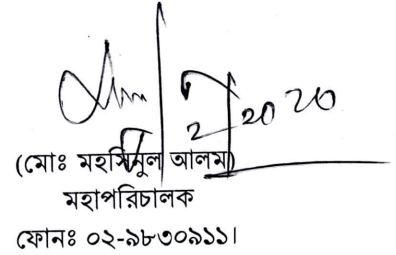 2020
(মোঃ মহসিনুল আলম)
মহাপরিচালক
ফোনঃ ০২-৯৮৩০৯১১।